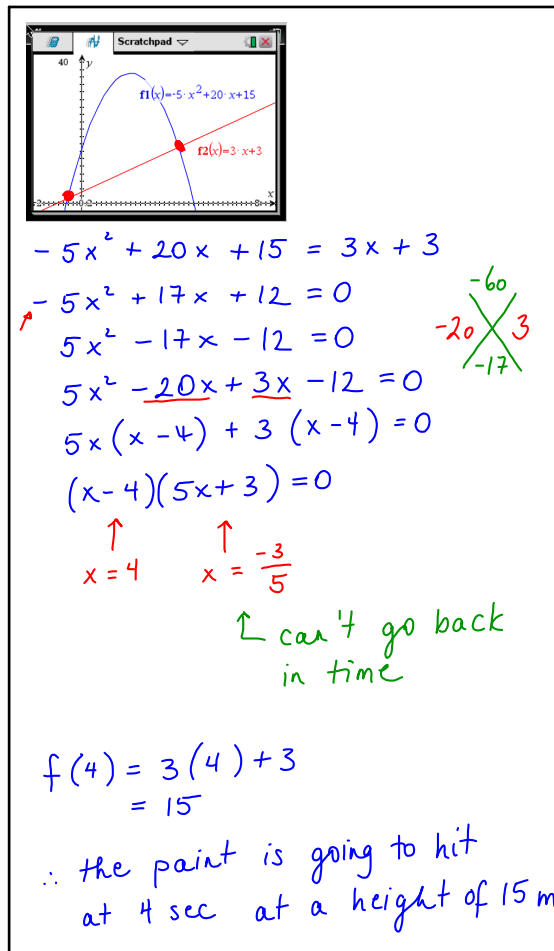 Scratchpad
40 y
f1(x)=-5·x²+20·x+15
f2(x)=3·x+3
x
-2 0.2 8
-5x² + 20x + 15 = 3x + 3
-5x² + 17x + 12 = 0
-60
-20 3
-17
5x² - 17x - 12 = 0
5x² - 20x + 3x - 12 = 0
5x(x-4) + 3(x-4) = 0
(x-4)(5x+3) = 0
x = 4 x = -3/5
can't go back
in time
f(4) = 3(4) + 3
= 15
∴ the paint is going to hit
at 4 sec at a height of 15 m